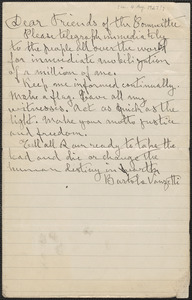 Dear Friends of the Committee
Please telegraph immediately
to the people all over the world
for immediate mobilization
of a million of men
Keep me informed continually.
Make a Save all my
witnesses. Act as quick as the
light. Make your motto justice
and freedom.
Tell all I am ready to take the
lead and die or change the
human destiny in
Bartolo Vanzetti